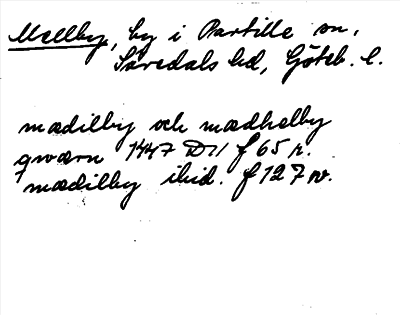 Mellby, by i Partille sn,
Sävedals hd, Göteb. l.
mædilby och mædhelby
qwærn 1447 D11 f 65 r.
mædilby ibid. f 127 v.